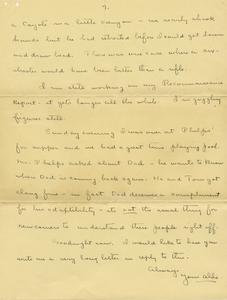 7.
a Coyote in a little Canyon - we nearly shook
hands but he had retreated before I could get down
and draw bead. There was one case where a six-
shooter would have been better than a rifle.
I am still working on my Reconnaissance
Report - it gets longer all the while. I'm juggling
figures still.
Sunday evening I was over at Phelps'
for supper and we had a great time playing pool.
Mr. Phelps asked about Dad - he wants to know
when Dad is coming back again. He and Tom got
along fine - in fact Dad deserves a compliment
for his adaptibility - its not the usual thing for
newcomers to understand these people right off.
Goodnight now. I would like to have you
write me a very long letter in reply to this.
Always
Your Aldo